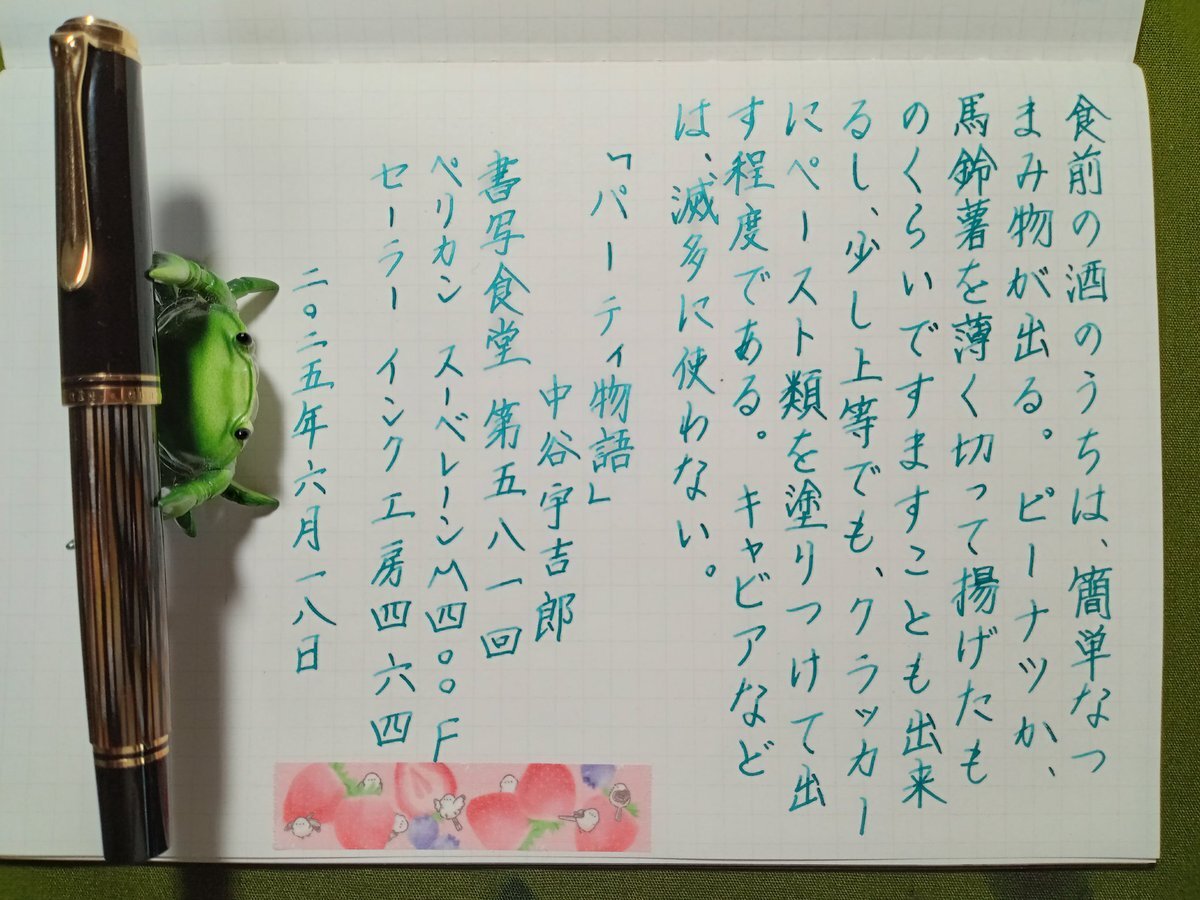 食前の酒のうちは、簡単なつ
まみ物が出る。ピーナツか、
馬鈴薯を薄く切って揚げたも
のくらいですますことも出来
るし、少し上等でも、クラッカー
にペースト類を塗りつけて出
す程度である。キャビアなど
は、滅多に使わない。
「パーティ物語」
中谷宇吉郎
書写食堂 第五八一回
ペリカン スーベレーンM四〇〇 F
セーラー インク工房四六四
二〇二五年六月一八日